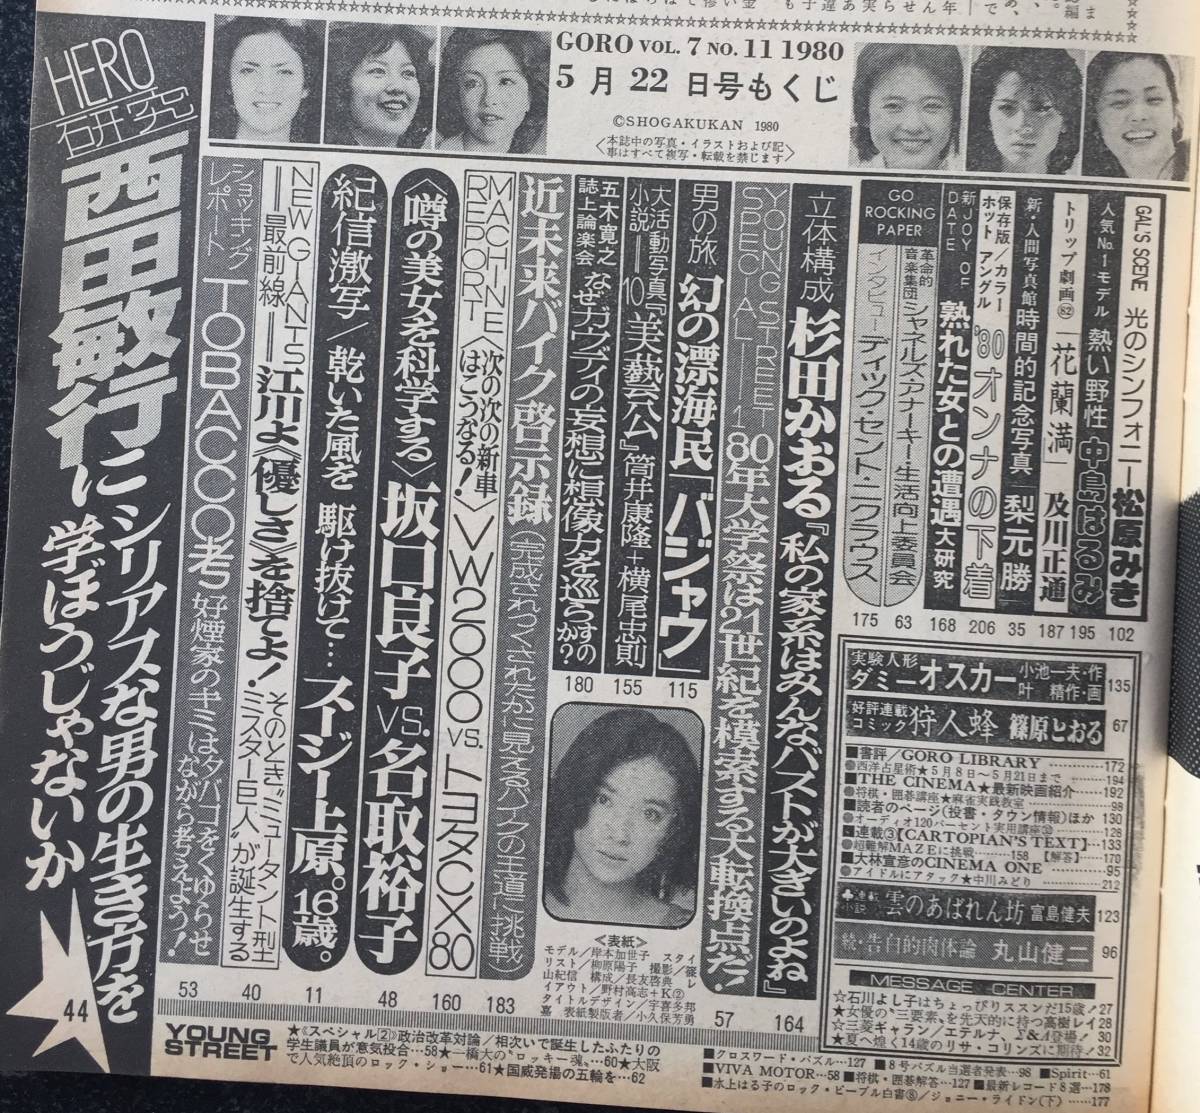 GORO VOL. 7 NO. 11 1980
5月22日号もくじ
©SHOGAKUKAN 1980
〈本誌中の写真・イラストおよび記
事はすべて複写・転載を禁じます〉
GAL'S SCENE 光のシンフォニー 松原みき 102
人気No.1モデル 熱い野性 中島はるみ 195
トリップ劇画82 「花蘭満」 及川正通 187
新・人間写真館 時間的記念写真 梨元勝 35
保存版/カラー
ホットアングル '80オンナの下着 206
新JOY OF
DATE 熟れた女との遭遇大研究 168
GO
ROCKING
PAPER
革命的
音楽集団 シャネルズ・アナーキー生活向上委員会 63
インタビュー ディック・セント・ニクラウス 175
立体構成 杉田かおる『私の家系はみんなバストが大きいのよね』 164
YOUNG STREET
SPECIAL 1 80年大学祭は21世紀を模索する大転換点だ! 57
男の旅 幻の漂海民「バジャウ」 115
大活動写真
小説 10 『美藝公』筒井康隆+横尾忠則 155
五木寛之
誌上論楽会 なぜガウディの妄想に想像力を巡らすの?
180
近未来バイク啓示録 (完成されつくされたかに見えるバイクの王道に挑戦) 183
MACHINE
REPORT 〈次の次の新車
はこうなる!〉 VW2000 vs. トヨタCX80 160
〈噂の美女を科学する〉 坂口良子 vs. 名取裕子 48
紀信激写/乾いた風を 駆け抜けて… スージー上原。16歳。 11
NEW GIANTS
—最前線— 江川よ《優しさ》を捨てよ! そのとき"ミュータント型
ミスター巨人"が誕生する 40
ショッキング
レポート TOBACCO考 好煙家のキミはタバコをくゆらせ
ながら考えよう! 53
HERO
研究
西田敏行に シリアスな男の生き方を
学ぼうじゃないか 44
〈表紙〉
モデル/岸本加世子 スタイ
リスト/柳原陽子 撮影/篠
山紀信 構成/長友啓典 レ
イアウト/野村高志+K②
タイトルデザイン/宇喜多邦
嘉 表紙製版者/小久保芳勇
実験人形
ダミーオスカー 小池一夫・作
叶 精作・画 135
好評連載
コミック 狩人蜂 篠原とおる 67
■書評/GORO LIBRARY 172
●西洋占星術★5月8日〜5月21日まで 194
■THE CINEMA★最新映画紹介 192
●将棋・囲碁講座★麻雀実践教室 98
■読者のページ(投書・タウン情報)ほか 130
●オーディオ120パーセント実用講座 128
■連載③【CARTOPIAN'S TEXT】 133
●超難解MAZEに挑戦 158 【解答】 170
■大林宣彦のCINEMA ONE 95
●アイドルにアタック★中川みどり 212
♣連載
小説 雲のあばれん坊 富島健夫 123
続・告白的肉体論 丸山健二 96
MESSAGE CENTER
☆石川よし子はちょっぴりススンだ15歳! 27
★女優の"三要素"を先天的に持つ高樹レイ 28
☆三菱ギャラン/エテルナ、Σ&Λ登場! 30
★夏へ煌く14歳のリサ・コリンズに期待! 32
YOUNG
STREET
★《スペシャル②》政治改革対論/相次いで誕生したふたりの
学生議員が意気投合…58 ★一橋大の"ロッキー魂"…60 ★大阪
で人気絶頂のロック・ショー…61 ★国威発揚の五輪を…62
■クロスワード・パズル…127 ■8号パズル当選者発表…98 ■Spirit…61
■VIVA MOTOR…58 ■将棋・囲碁解答…127 ■最新レコード8選…178
■水上はる子のロック・ピープル白書⑧/ジョニー・ライドン(下)……177